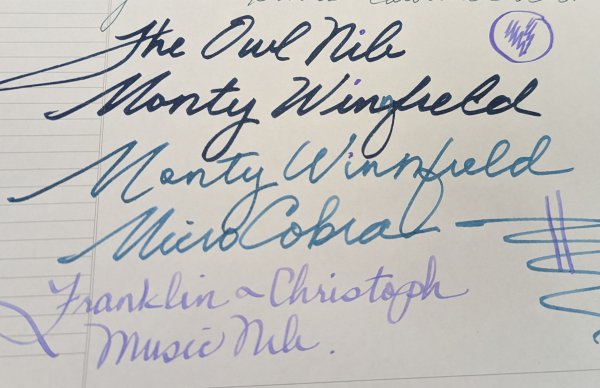 The Owl Nib
Monty Wingfield
Monty Winnfield
Micro Cobra
Franklin ~ Christoph
Music Nib.